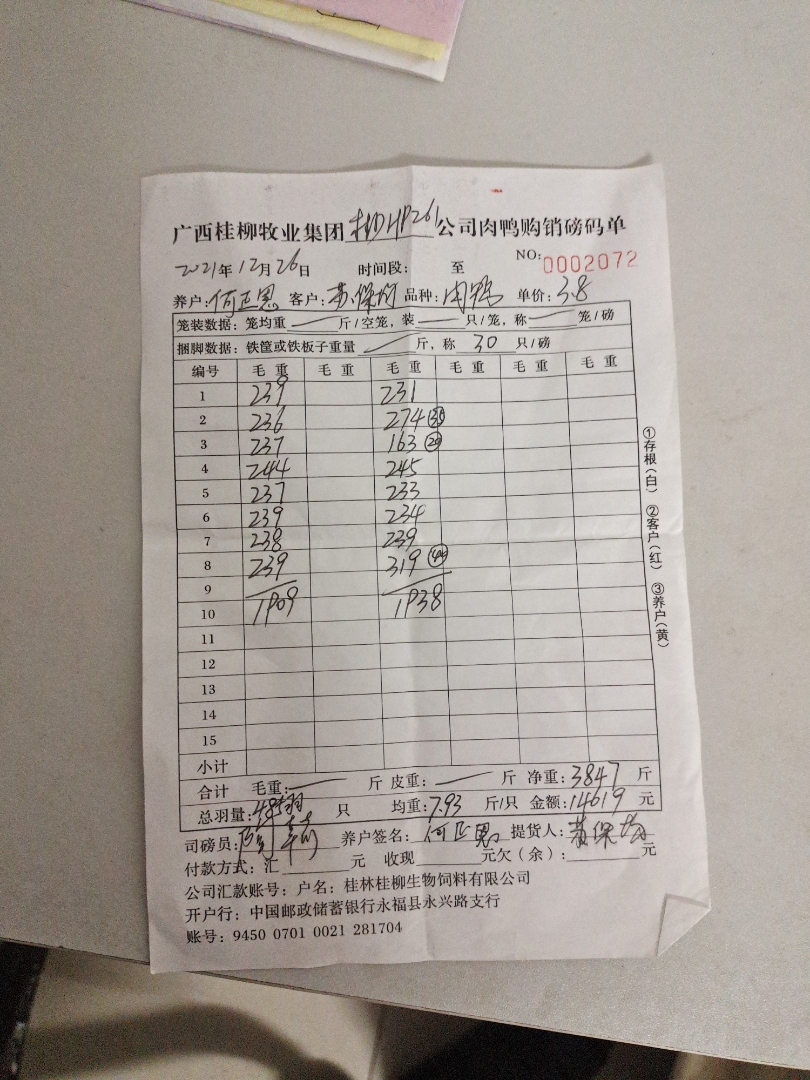 广西桂柳牧业集团 HP261 公司肉鸭购销磅码单
2021年12月26日 时间段: 至 NO:0002072
养户:何正恩 客户:苏保 品种:肉鸭 单价:3.8
笼装数据:笼均重 斤/空笼,装 只/笼,称 笼/磅
捆脚数据:铁筐或铁板子重量 斤,称 30 只/磅
编号 毛重 毛重 毛重 毛重 毛重 毛重
1 239 231
2 236 274
3 237 163
4 244 245
5 237 233
6 239 234
7 238 239
8 239 319
9
10 1909 1938
11
12
13
14
15
小计
合计 毛重: 斤 皮重: 斤 净重:3847 斤
总羽量:485羽 只 均重:7.93 斤/只 金额:14619 元
司磅员: 养户签名:何正恩 提货人:
付款方式:汇 元 收现 元欠(余): 元
公司汇款账号:户名:桂林桂柳生物饲料有限公司
开户行:中国邮政储蓄银行永福县永兴路支行
账号:9450 0701 0021 281704
①存根(白) ②客户(红) ③养户(黄)